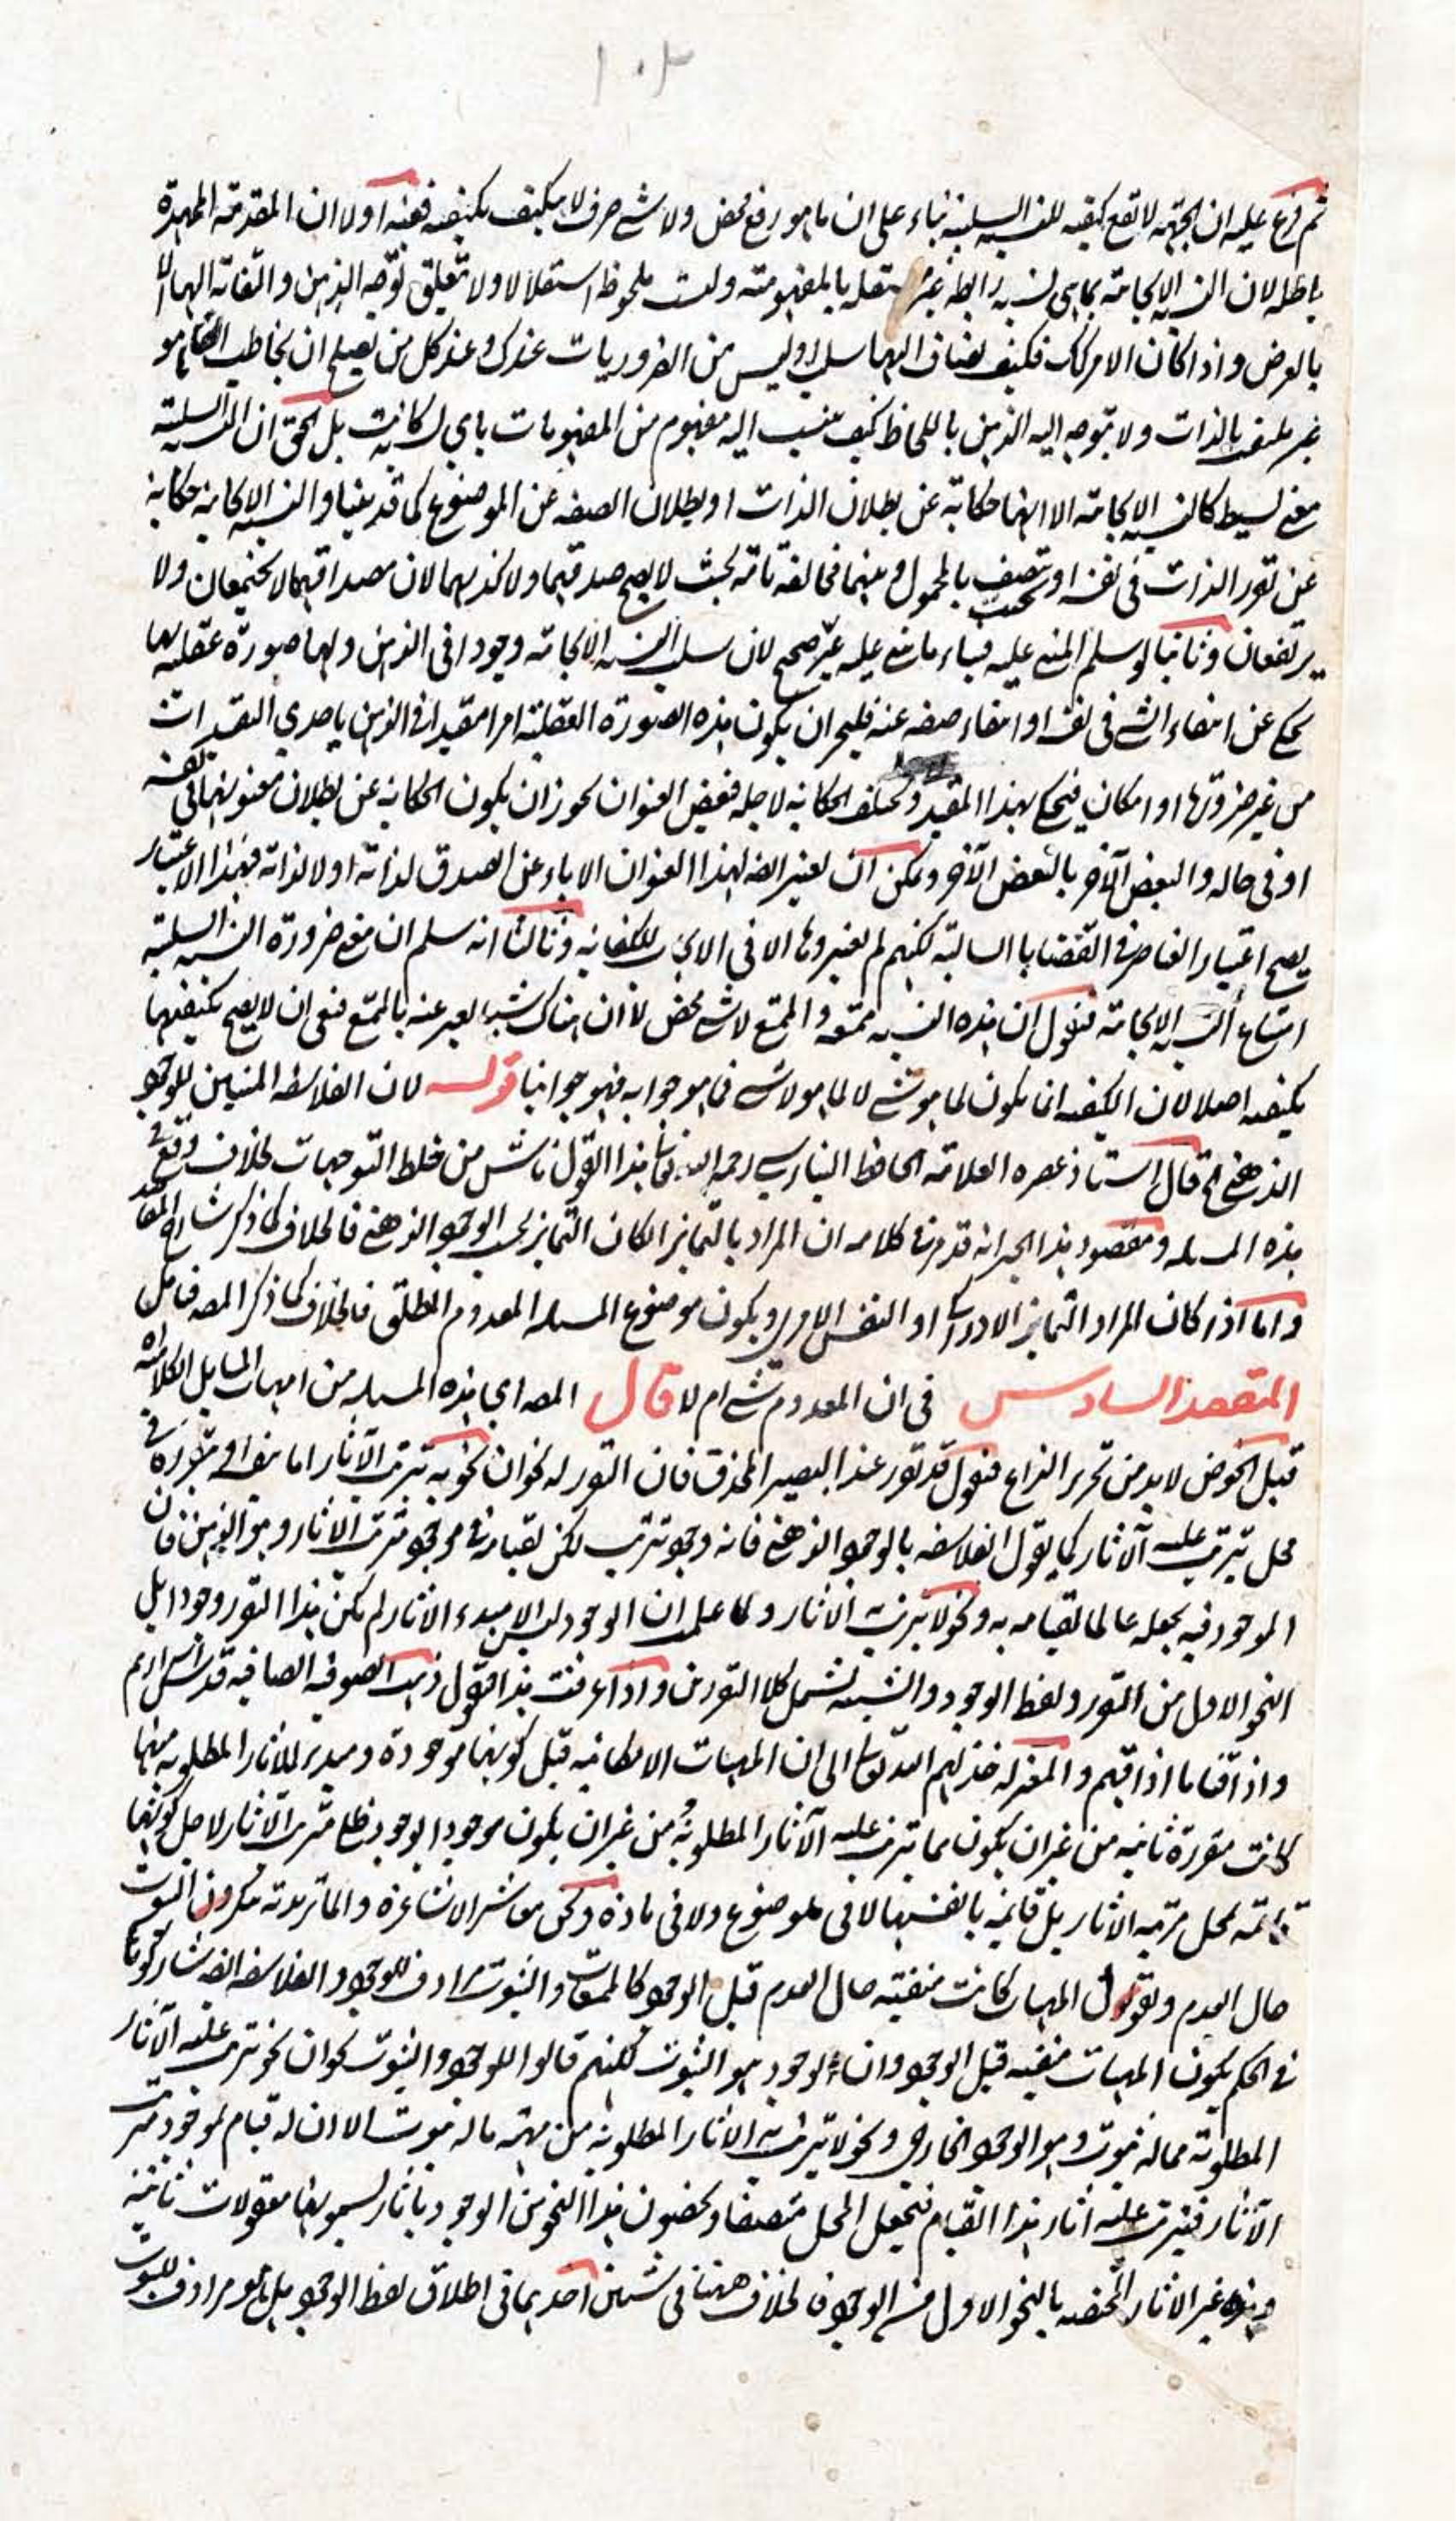 ١٠٢
ثم فرع عليه ان الجهة لا تقع كيفية للنسبة السلبية بناء على ان ما هو رفع محض ولا شئ صرف لا يكيف بكيفية ففيه اولا ان المقدمة الممهدة
باطلة لان النسبة الايجابية بما هي نسبة رابطة غير مستقلة بالمفهومية وليست ملحوظة استقلالا ولا تتعلق توجه الذهن والتفاته اليها الا
بالعرض واذا كان الامر كذلك فكيف يضاف اليها سلب اوليس من الضروريات عندك وعند كل من يصلح ان يخاطب ان ما هو
غير ملتفت بالذات ولا يتوجه اليه الذهن باللحاظ كيف ينسب اليه مفهوم من المفهومات باي كانت بل الحق ان النسبة السلبية
معنى بسيط كالنسبة الايجابية الا انها حكاية عن بطلان الذات او بطلان الصفة عن الموضوع كما قد بينا والنسبة الايجابية حكاية
عن تقرر الذات في نفسه او تتصف بالمحمول وبينهما مخالفة تامة بحيث لا يصح صدقهما ولا كذبهما لان مصداقيهما لا يجتمعان ولا
يرتفعان وثانيا لو سلم المبنى عليه فبناء ما بنى عليه غير صحيح لان سلب النسبة الايجابية وجودا في الذهن ولها صورة عقلية بها
يحكى عن انتفاء الشئ في نفسه او انتفاء صفة عنه فليجز ان يكون هذه الصورة العقلية امرا مقيدا في الذهن باحدى التقييدات
من غير ضرورتها او امكان فيحكى بهذا المقيد وتختلف الحكاية لاجله فبعض العنوان يجوز ان يكون الحكاية عن بطلان معنونها في نفسه
او في حاله والبعض الآخر بالبعض الآخر ويمكن ان يعتبر ايضا لهذا العنوان الاباء عن الصدق لذاته او لا لذاته فبهذا الاعتبار
يصح اعتبار العناصر في القضايا السالبة لكنهم لم يعتبروها الا في الايجاب للكفاية وثالثا انه سلم ان معنى ضرورة النسبة السلبية
امتناع النسبة الايجابية فنقول ان هذه النسبة ممتنعة والممتنع لا شئ محض لا ان هناك شيئا يعبر عنه بالممتنع فينبغي ان لا يصح تكيفها
بكيفية اصلا لان الكيفية انما يكون لما هو شئ لا لما هو لا شئ فما هو جوابه فهو جوابنا قوله لان الفلاسفة المثبتين للوجود
الذهني الخ قال استاذ عصره العلامة الحافظ البنارسي رحمه الله تعالى هذا القول ناش من خلط التوجيهات لخلاف وقع في
هذه المسئلة ومقصود هذا الحبر انه قد مر في كلامه ان المراد بالتمايز ان كان التمايز بحسب الوجود الذهني فالخلاف كما ذكر شارح المقاصد
واما اذا كان المراد التمايز الادراكي او النفس الامري ويكون موضوع المسئلة المعدوم المطلق فالخلاف كما ذكر المصه فتامل
المقصد السادس في ان المعدوم شئ ام لا قال المصه اي هذه المسئلة من امهات المسائل الكلامية
قبل الخوض لا بد من تحرير النزاع فنقول قد تقرر عند البصير المحذق فان التقرر له نحوان نحو به تترتب الآثار اما بنفسه او في تقرره في
محل يترتب عليه الآثار كما يقول الفلاسفة بالوجود الذهني فانه وجود ترتب لكن لقيامه في موجود مترتب الآثار وهو الذهن فان
الموجود فيه يجعله عالما لقيامه به ونحو لا يترتب الآثار ولما علمت ان الوجود ليس الا مبدء الآثار لم يكن هذا التقرر وجودا بل
النحو الاول من التقرر ولفظ الوجود والشيئية تشمل كلا التقررين واذا عرفت هذا فنقول ذهب الصوفية الصافية قدس اسرارهم
واذاقنا ما اذاقهم والمعتزلة خذلهم الله تعالى الى ان المهيات الامكانية قبل كونها موجودة ومبدء للآثار المطلوبة منها
كانت مقررة ثابتة من غير ان يكون مما يترتب عليه الآثار المطلوبة من غير ان يكون موجودا بوجود ظلي مترتب الآثار لاجل كونها
قائمة لمحل مرتبة الآثار بل قائمة بانفسها لا في موضوع ولا في مادة ونحن معاشر الاشاعرة والماتريدية منكرون الثبوت
حال العدم ونقول المهيات كانت منفية حال العدم قبل الوجود كالممتنعات والثبوت مرادف للوجود والفلاسفة ايضا شاركونا
في الحكم بكون المهيات منفية قبل الوجود وان الوجود هو الثبوت لكنهم قالوا للوجود والثبوت نحوان نحو يترتب عليه الآثار
المطلوبة مما له ثبوت وهو الوجود الخارجي ونحو لا يترتب به الآثار المطلوبة من مهية ما له ثبوت الا ان له قيام لموجود مترتب
الآثار فيترتب عليه آثار هذا القيام فيجعل المحل متصفا ويخصون هذا النحو من الوجود بآثار يسمونها معقولات ثانية
وهذه غير الآثار المختصة بالنحو الاول من الوجود فالخلاف ههنا في شيئين احدهما في اطلاق لفظ الوجود هل هو مرادف للثبوت